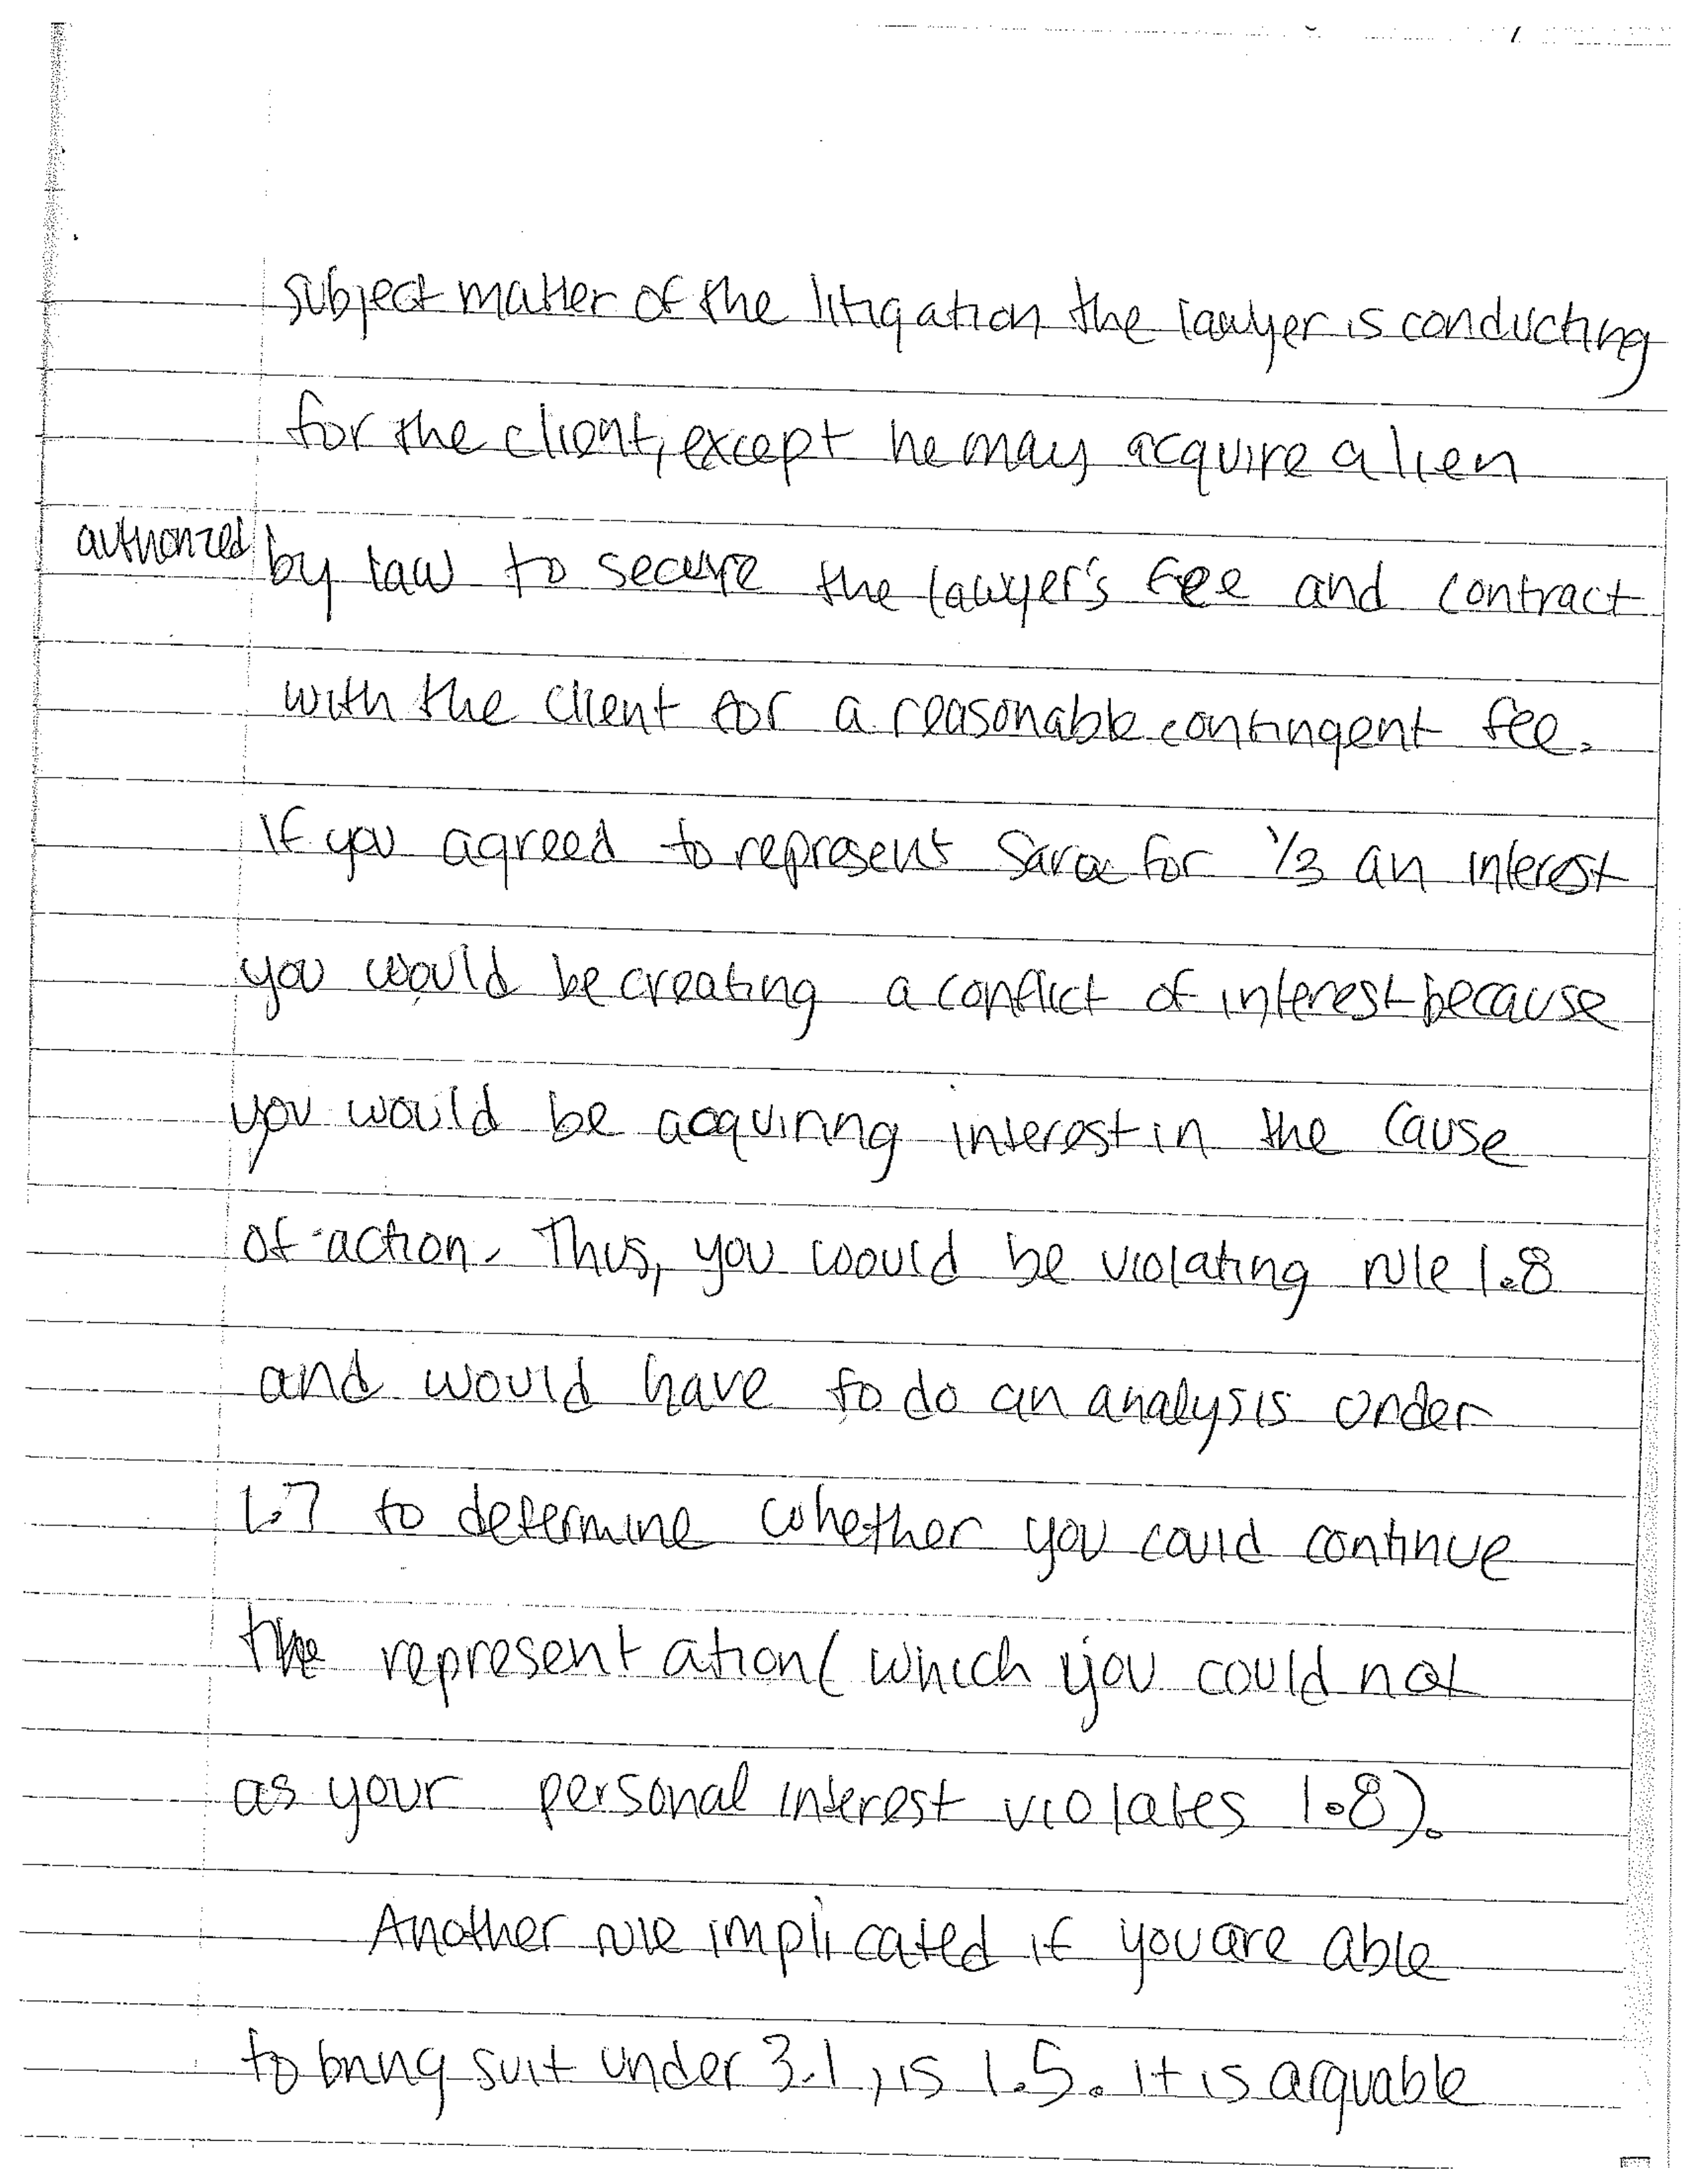 subject matter of the litigation the lawyer is conducting
for the client, except he may acquire a lien
authorized by law to secure the lawyer's fee and contract
with the client for a reasonable contingent fee.
If you agreed to represent Sara for 1/3 an interest
you would be creating a conflict of interest because
you would be acquiring interest in the cause
of action. Thus, you would be violating rule 1.8
and would have to do an analysis under
1.7 to determine whether you could continue
the representation (which you could not
as your personal interest violates 1.8).
Another rule implicated if you are able
to bring suit under 3.1, is 1.5. It is arguable